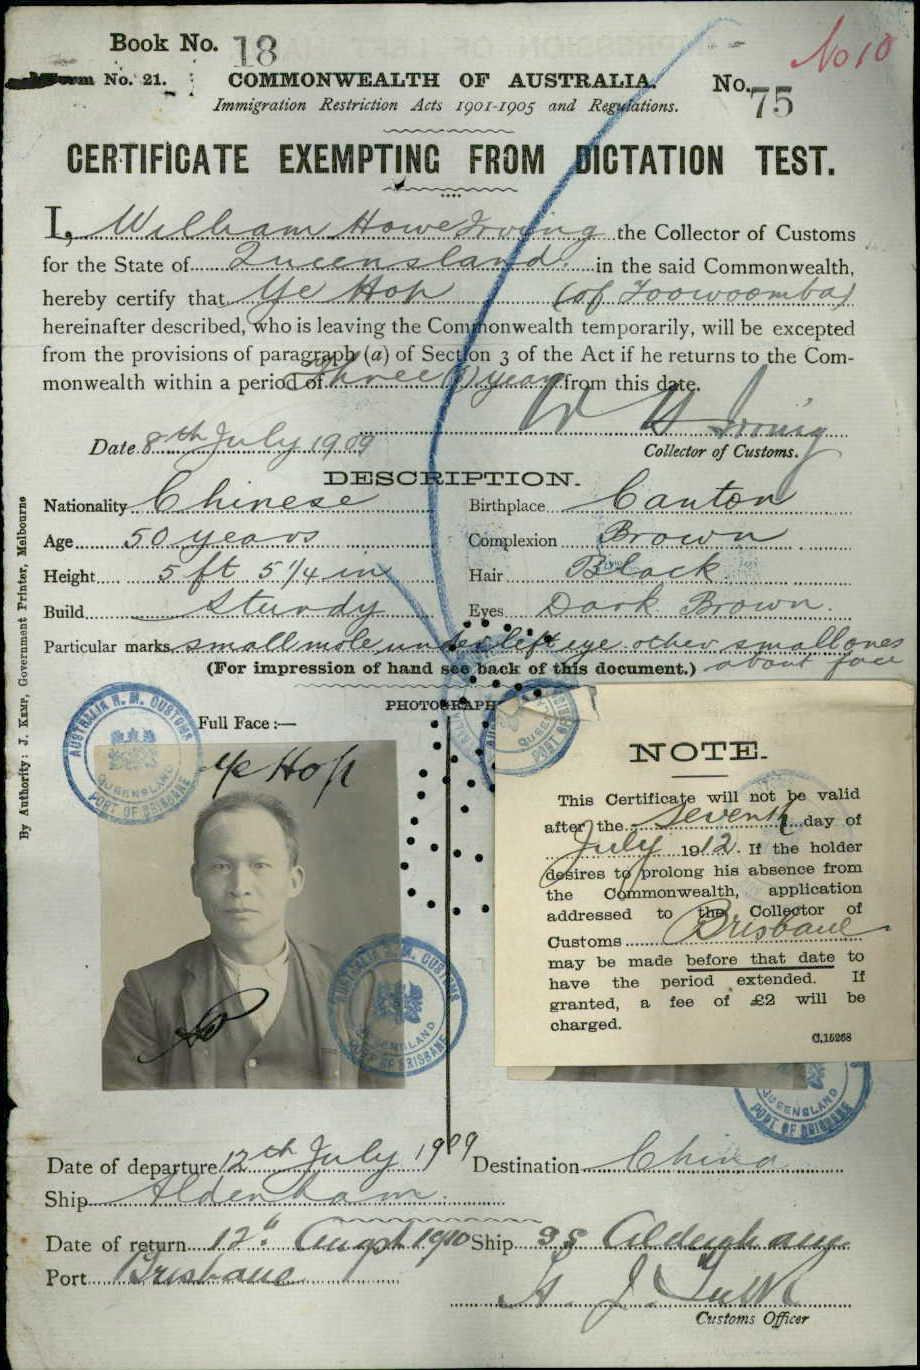 Book No. 18
Form No. 21.
No 10
COMMONWEALTH OF AUSTRALIA.
No. 75
Immigration Restriction Acts 1901-1905 and Regulations.
CERTIFICATE EXEMPTING FROM DICTATION TEST.
I, William Howe Irving the Collector of Customs
for the State of Queensland. in the said Commonwealth,
hereby certify that Ye Hop (of Toowoomba)
hereinafter described, who is leaving the Commonwealth temporarily, will be excepted
from the provisions of paragraph (a) of Section 3 of the Act if he returns to the Com-
monwealth within a period of Three (3) years from this date.
W H Irving
Date 8th July 1909
Collector of Customs.
DESCRIPTION.
Nationality Chinese Birthplace Canton
Age 50 years Complexion Brown
Height 5 ft 5 1/4 in Hair Black
Build Sturdy Eyes Dark Brown.
Particular marks small mole under left eye other small ones
about face
(For impression of hand see back of this document.)
PHOTOGRAPH
Full Face :—
Ye Hop
AUSTRALIA H.M. CUSTOMS
QUEENSLAND
PORT OF BRISBANE
NOTE.
This Certificate will not be valid
after the Seventh day of
July 1912. If the holder
desires to prolong his absence from
the Commonwealth, application
addressed to the Collector of
Customs Brisbane
may be made before that date to
have the period extended. If
granted, a fee of £2 will be
charged.
C.15268
AUSTRALIA H.M. CUSTOMS
QUEENSLAND
PORT OF BRISBANE
QUEENSLAND
PORT OF BRISBANE
Date of departure 12th July 1909 Destination China
Ship Aldenham.
Date of return 12th Augst 1910 Ship SS Aldenham
Port Brisbane
Customs Officer
By Authority: J. KEMP, Government Printer, Melbourne